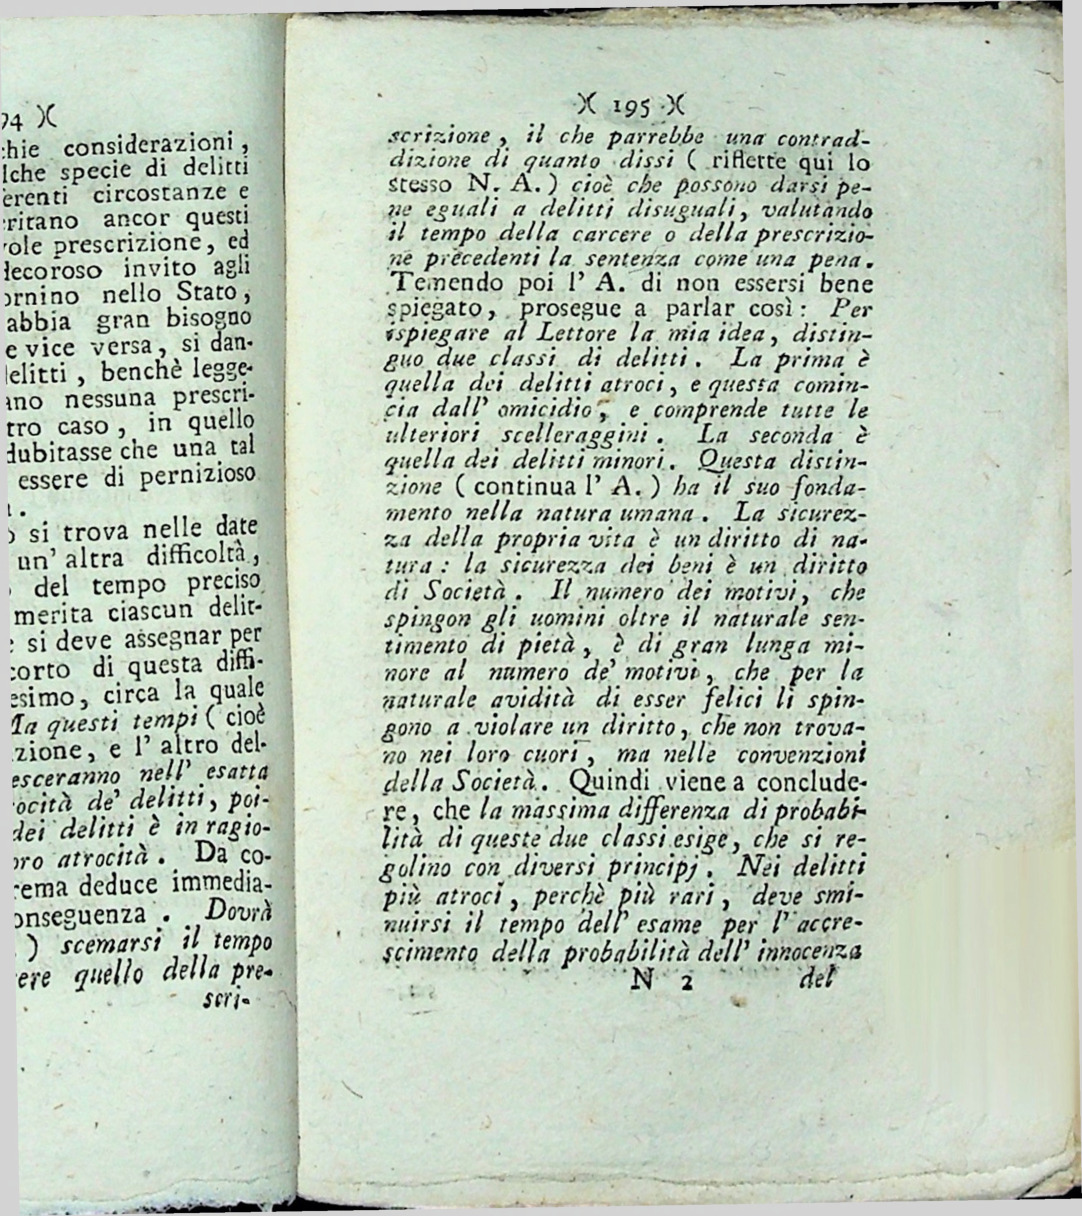 94 )(
chie considerazioni,
lche specie di delitti
ferenti circostanze e
ritano ancor questi
vole prescrizione, ed
decoroso invito agli
ornino nello Stato,
abbia gran bisogno
e vice versa, si dan-
delitti, benchè legge-
ano nessuna prescri-
tro caso, in quello
dubitasse che una tal
essere di pernizioso
.
si trova nelle date
un' altra difficoltà,
del tempo preciso
merita ciascun delit-
: si deve assegnar per
corto di questa diffi-
esimo, circa la quale
Ma questi tempi (cioè
zione, e l' altro del-
esceranno nell' esatta
ocità de' delitti, poi-
dei delitti è in ragio-
oro atrocità. Da co-
rema deduce immedia-
onseguenza. Dovrà
) scemarsi il tempo
ere quello della pre-
scri-
)( 195 )(
scrizione, il che parrebbe una contrad-
dizione di quanto dissi ( riflette qui lo
stesso N. A.) cioè che possono darsi pe-
ne eguali a delitti disuguali, valutando
il tempo della carcere o della prescrizio-
ne precedenti la sentenza come una pena.
Temendo poi l' A. di non essersi bene
spiegato, prosegue a parlar così: Per
ispiegare al Lettore la mia idea, distin-
guo due classi di delitti. La prima è
quella dei delitti atroci, e questa comin-
cia dall' omicidio, e comprende tutte le
ulteriori scelleraggini. La seconda è
quella dei delitti minori. Questa distin-
zione ( continua l' A.) ha il suo fonda-
mento nella natura umana. La sicurez-
za della propria vita è un diritto di na-
tura: la sicurezza dei beni è un diritto
di Società. Il numero dei motivi, che
spingon gli uomini oltre il naturale sen-
timento di pietà, è di gran lunga mi-
nore al numero de' motivi, che per la
naturale avidità di esser felici li spin-
gono a violare un diritto, che non trova-
no nei loro cuori, ma nelle convenzioni
della Società. Quindi viene a conclude-
re, che la massima differenza di probabi-
lità di queste due classi esige, che si re-
golino con diversi principj. Nei delitti
più atroci, perchè più rari, deve smi-
nuirsi il tempo dell' esame per l' accre-
scimento della probabilità dell' innocenza
N 2 del